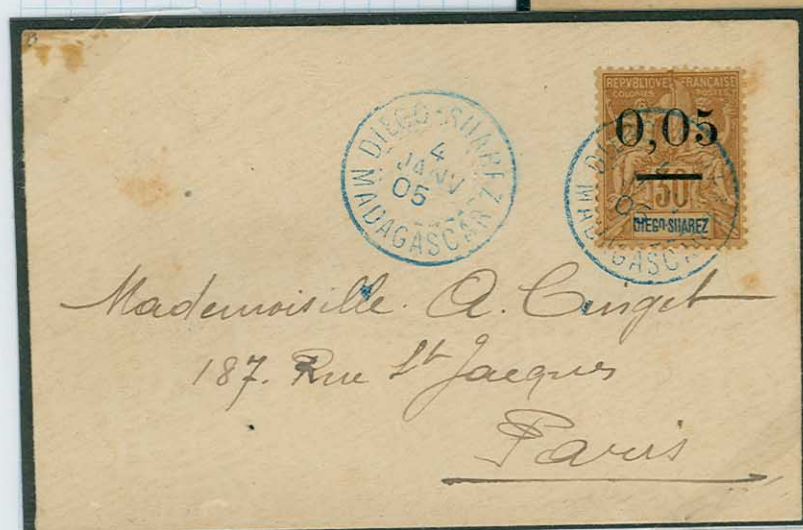 DIEGO-SUAREZ
4
JANV
05
MADAGASCAR
REPVBLIQVE FRANÇAISE
COLONIES POSTES
0,05
30
DIEGO-SUAREZ
Mademoiselle. A.
187. Rue St Jacques
Paris